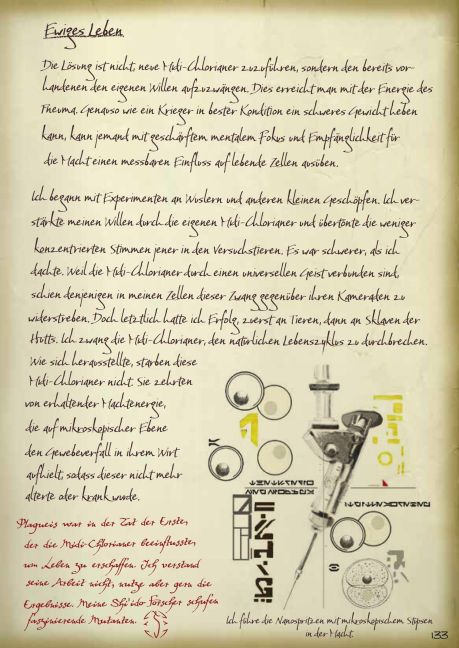 Ewiges Leben
Die Lösung ist nicht, neue Midi-Chlorianer zuzuführen, sondern den bereits vor-
handenen den eigenen Willen aufzuzwängen. Dies erreicht man mit der Energie des
Pneuma. Genauso wie ein Krieger in bester Kondition ein schweres Gewicht heben
kann, kann jemand mit geschärftem mentalem Fokus und Empfänglichkeit für
die Macht einen messbaren Einfluss auf lebende Zellen ausüben.
Ich begann mit Experimenten an Wuslern und anderen kleinen Geschöpfen. Ich ver-
stärkte meinen Willen durch die eigenen Midi-Chlorianer und übertönte die weniger
konzentrierten Stimmen jener in den Versuchstieren. Es war schwerer, als ich
dachte. Weil die Midi-Chlorianer durch einen universellen Geist verbunden sind,
schien denjenigen in meinen Zellen dieser Zwang gegenüber ihren Kameraden zu
widerstreben. Doch letztlich hatte ich Erfolg, zuerst an Tieren, dann an Sklaven der
Hutts. Ich zwang die Midi-Chlorianer, den natürlichen Lebenszyklus zu durchbrechen.
Wie sich herausstellte, starben diese
Midi-Chlorianer nicht. Sie zehrten
von erhaltender Machtenergie,
die auf mikroskopischer Ebene
den Gewebeverfall in ihrem Wirt
aufhielt, sodass dieser nicht mehr
alterte oder krank wurde.
Plagueis war in der Tat der Erste,
der die Midi-Chlorianer beeinflusste,
um Leben zu erschaffen. Ich verstand
seine Arbeit nicht, nutze aber gern die
Ergebnisse. Meine Shi'ido Forscher schufen
faszinierende Mutanten.
Ich führe die Nanospritzen mit mikroskopischem Stupsen
in der Macht.
133